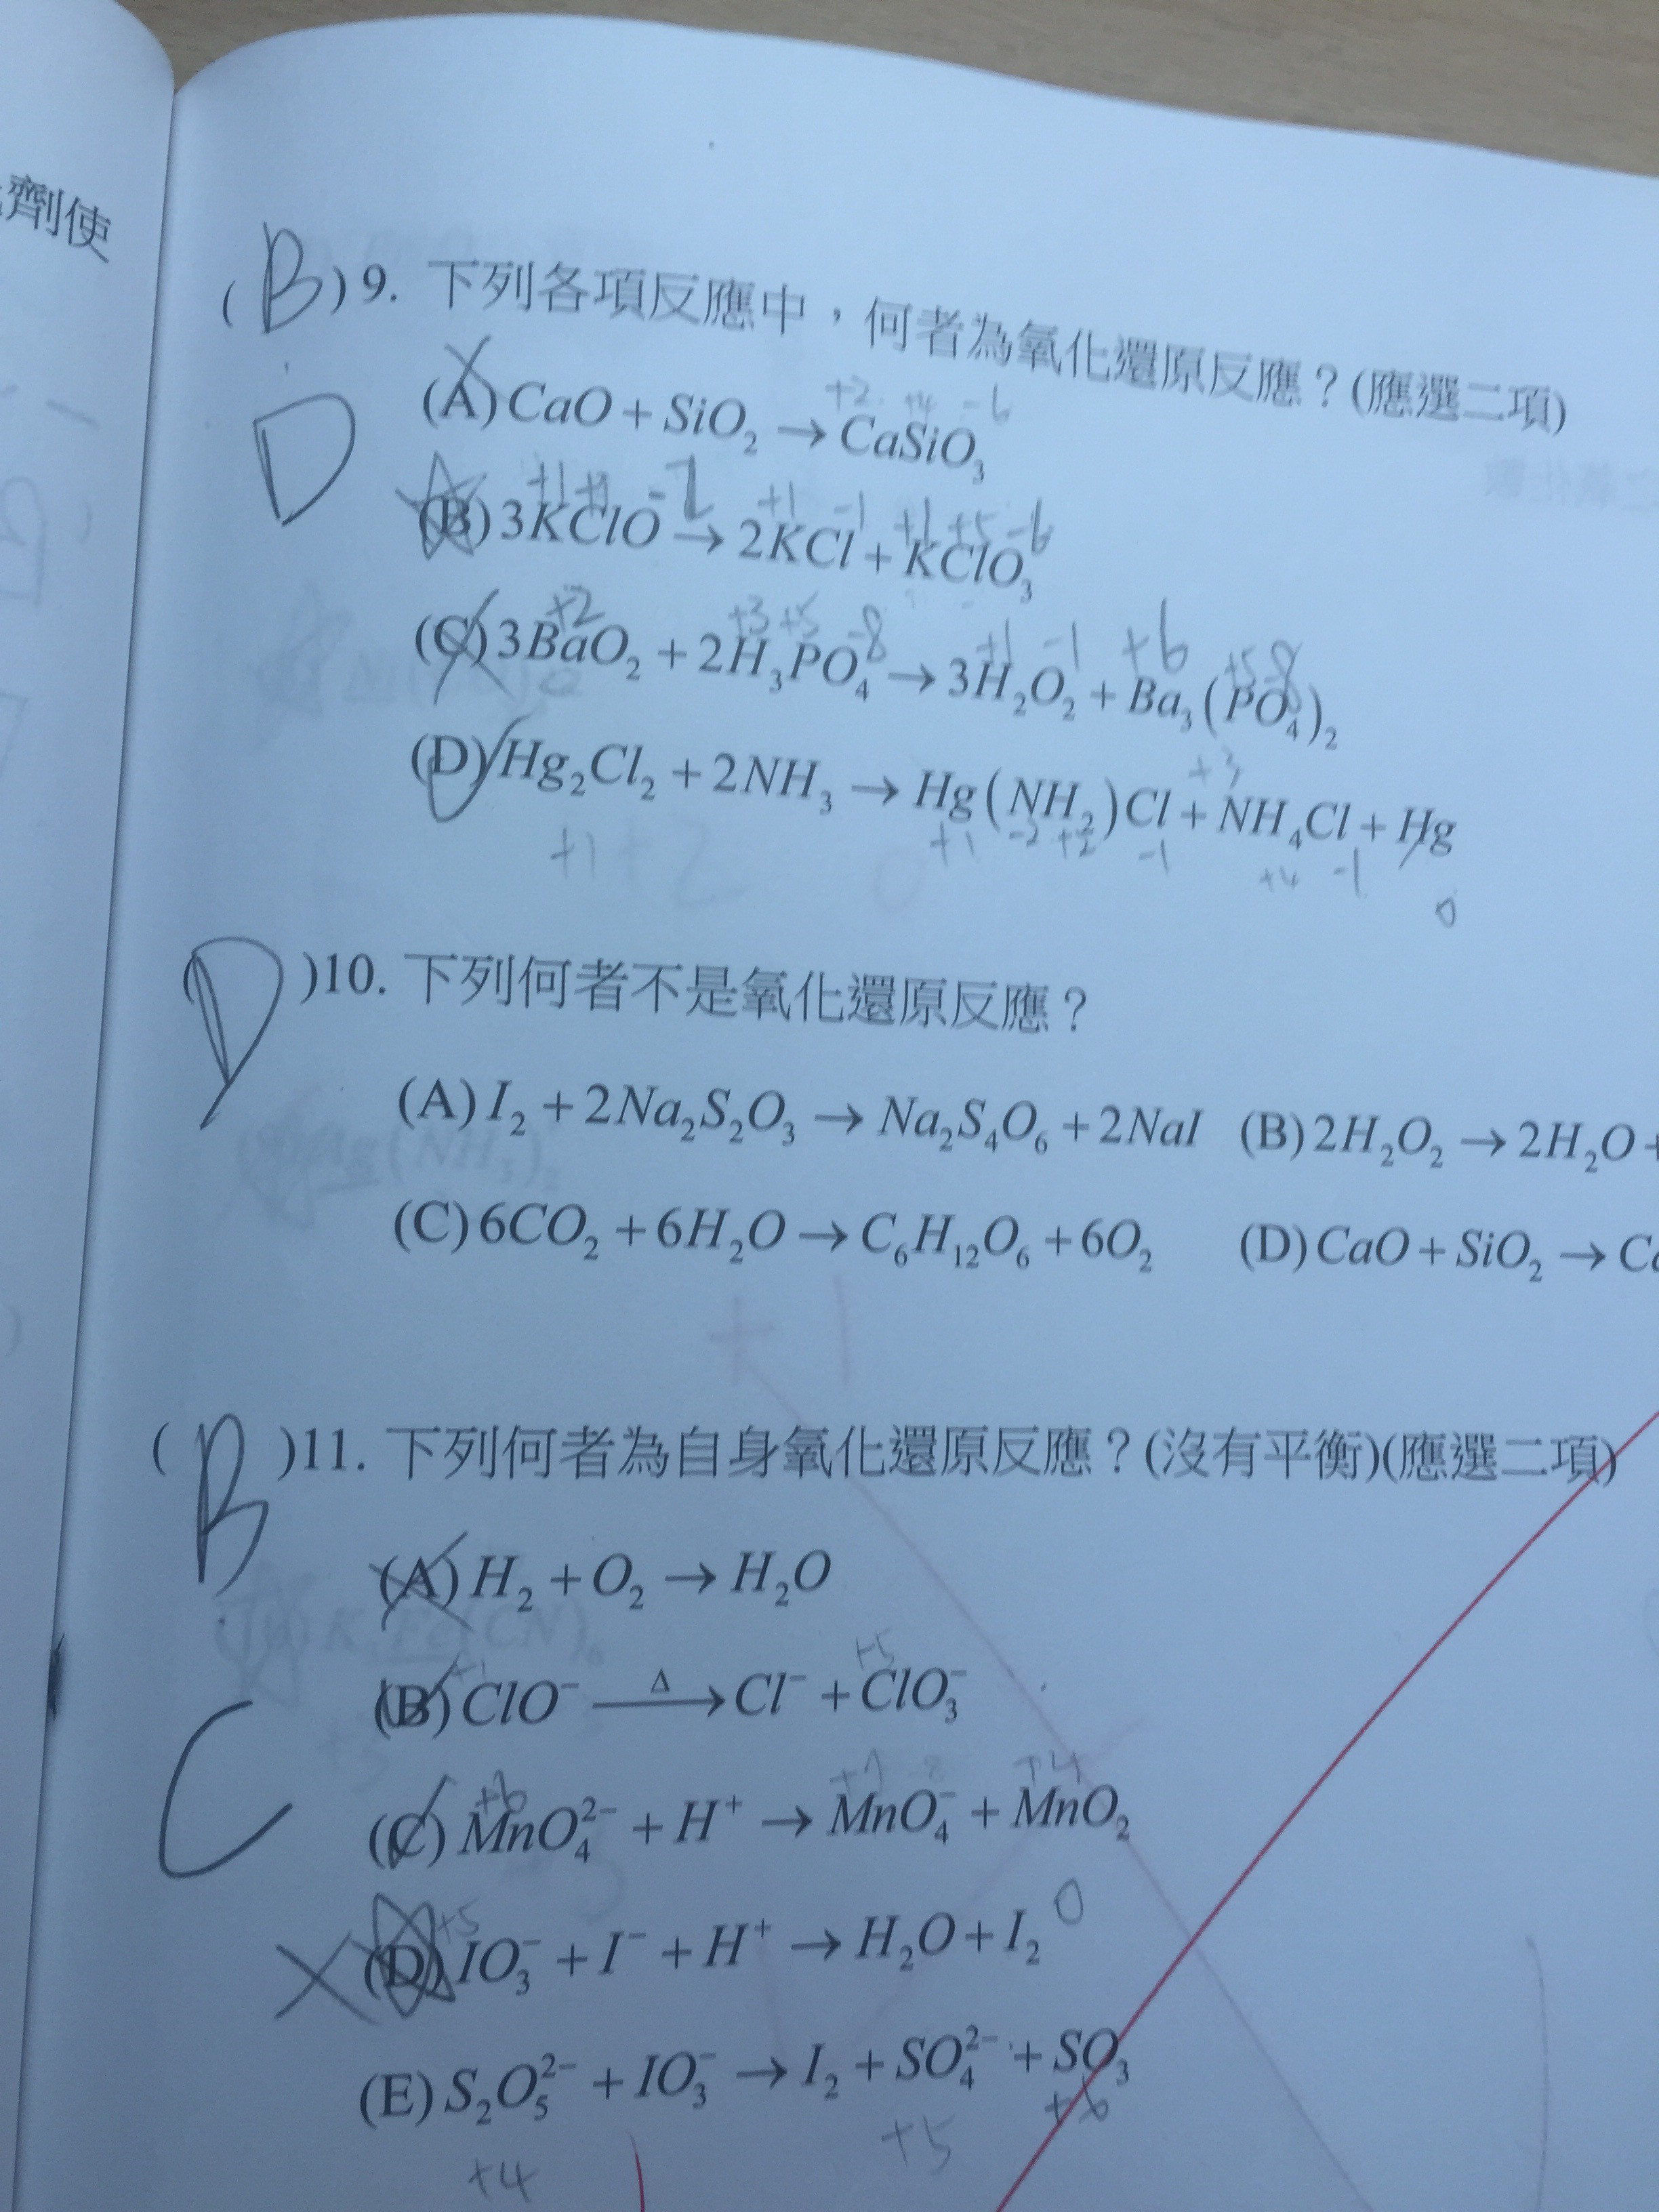 劑使
(B)9. 下列各項反應中，何者為氧化還原反應？(應選二項)
D
+2 +4 -6
(A)CaO + SiO₂ → CaSiO₃
+1 -2 +1 -1 +1 +5 -6
(B)3KClO → 2KCl + KClO₃
+2 +3 +5 -8 +1 -1 +6 +5 -8
(C)3BaO₂ + 2H₃PO₄ → 3H₂O₂ + Ba₃(PO₄)₂
+3
(D)Hg₂Cl₂ + 2NH₃ → Hg(NH₂)Cl + NH₄Cl + Hg
+1 -2 +2 -1 +4 -1 0
(D)10. 下列何者不是氧化還原反應？
(A)I₂ + 2Na₂S₂O₃ → Na₂S₄O₆ + 2NaI (B)2H₂O₂ → 2H₂O +
(C)6CO₂ + 6H₂O → C₆H₁₂O₆ + 6O₂ (D)CaO + SiO₂ →
(B)11. 下列何者為自身氧化還原反應？(沒有平衡)(應選二項)
(A)H₂ + O₂ → H₂O
+1 +5
(B)ClO⁻ —Δ→ Cl⁻ + ClO₃⁻
C
+6 +7 +4
(C)MnO₄²⁻ + H⁺ → MnO₄⁻ + MnO₂
+5 0
(D)IO₃⁻ + I⁻ + H⁺ → H₂O + I₂
(E)S₂O₅²⁻ + IO₃⁻ → I₂ + SO₄²⁻ + SO₃
+4 +5 +6